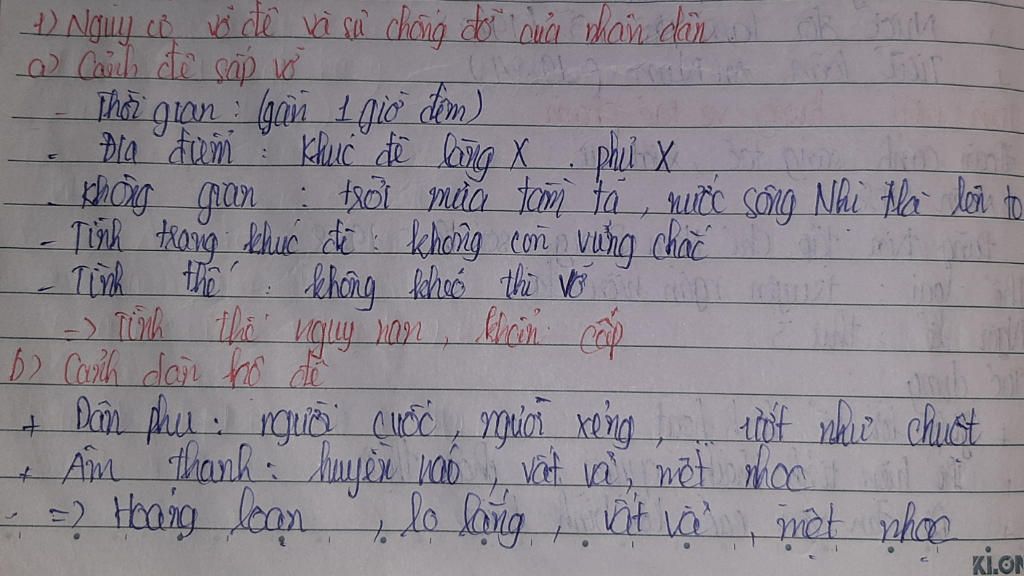 1) Nguy cơ vỡ đê và sự chống đỡ của nhân dân
a) Cảnh đê sắp vỡ
- Thời gian : (gần 1 giờ đêm)
- Địa điểm : khúc đê làng X . phủ X
- không gian : trời mưa tầm tã , nước sông Nhị Hà lên to
- Tình trạng khúc đê : không còn vững chắc
- Tình thế : không khéo thì vỡ
=> Tình thế nguy nan , khẩn cấp
b) Cảnh dân hộ đê
+ Dân phu : người cuốc , người xẻng , ướt như chuột
+ Âm thanh : huyên náo , vất vả , mệt nhọc
=> Hoảng loạn , lo lắng , vất vả , mệt nhọc